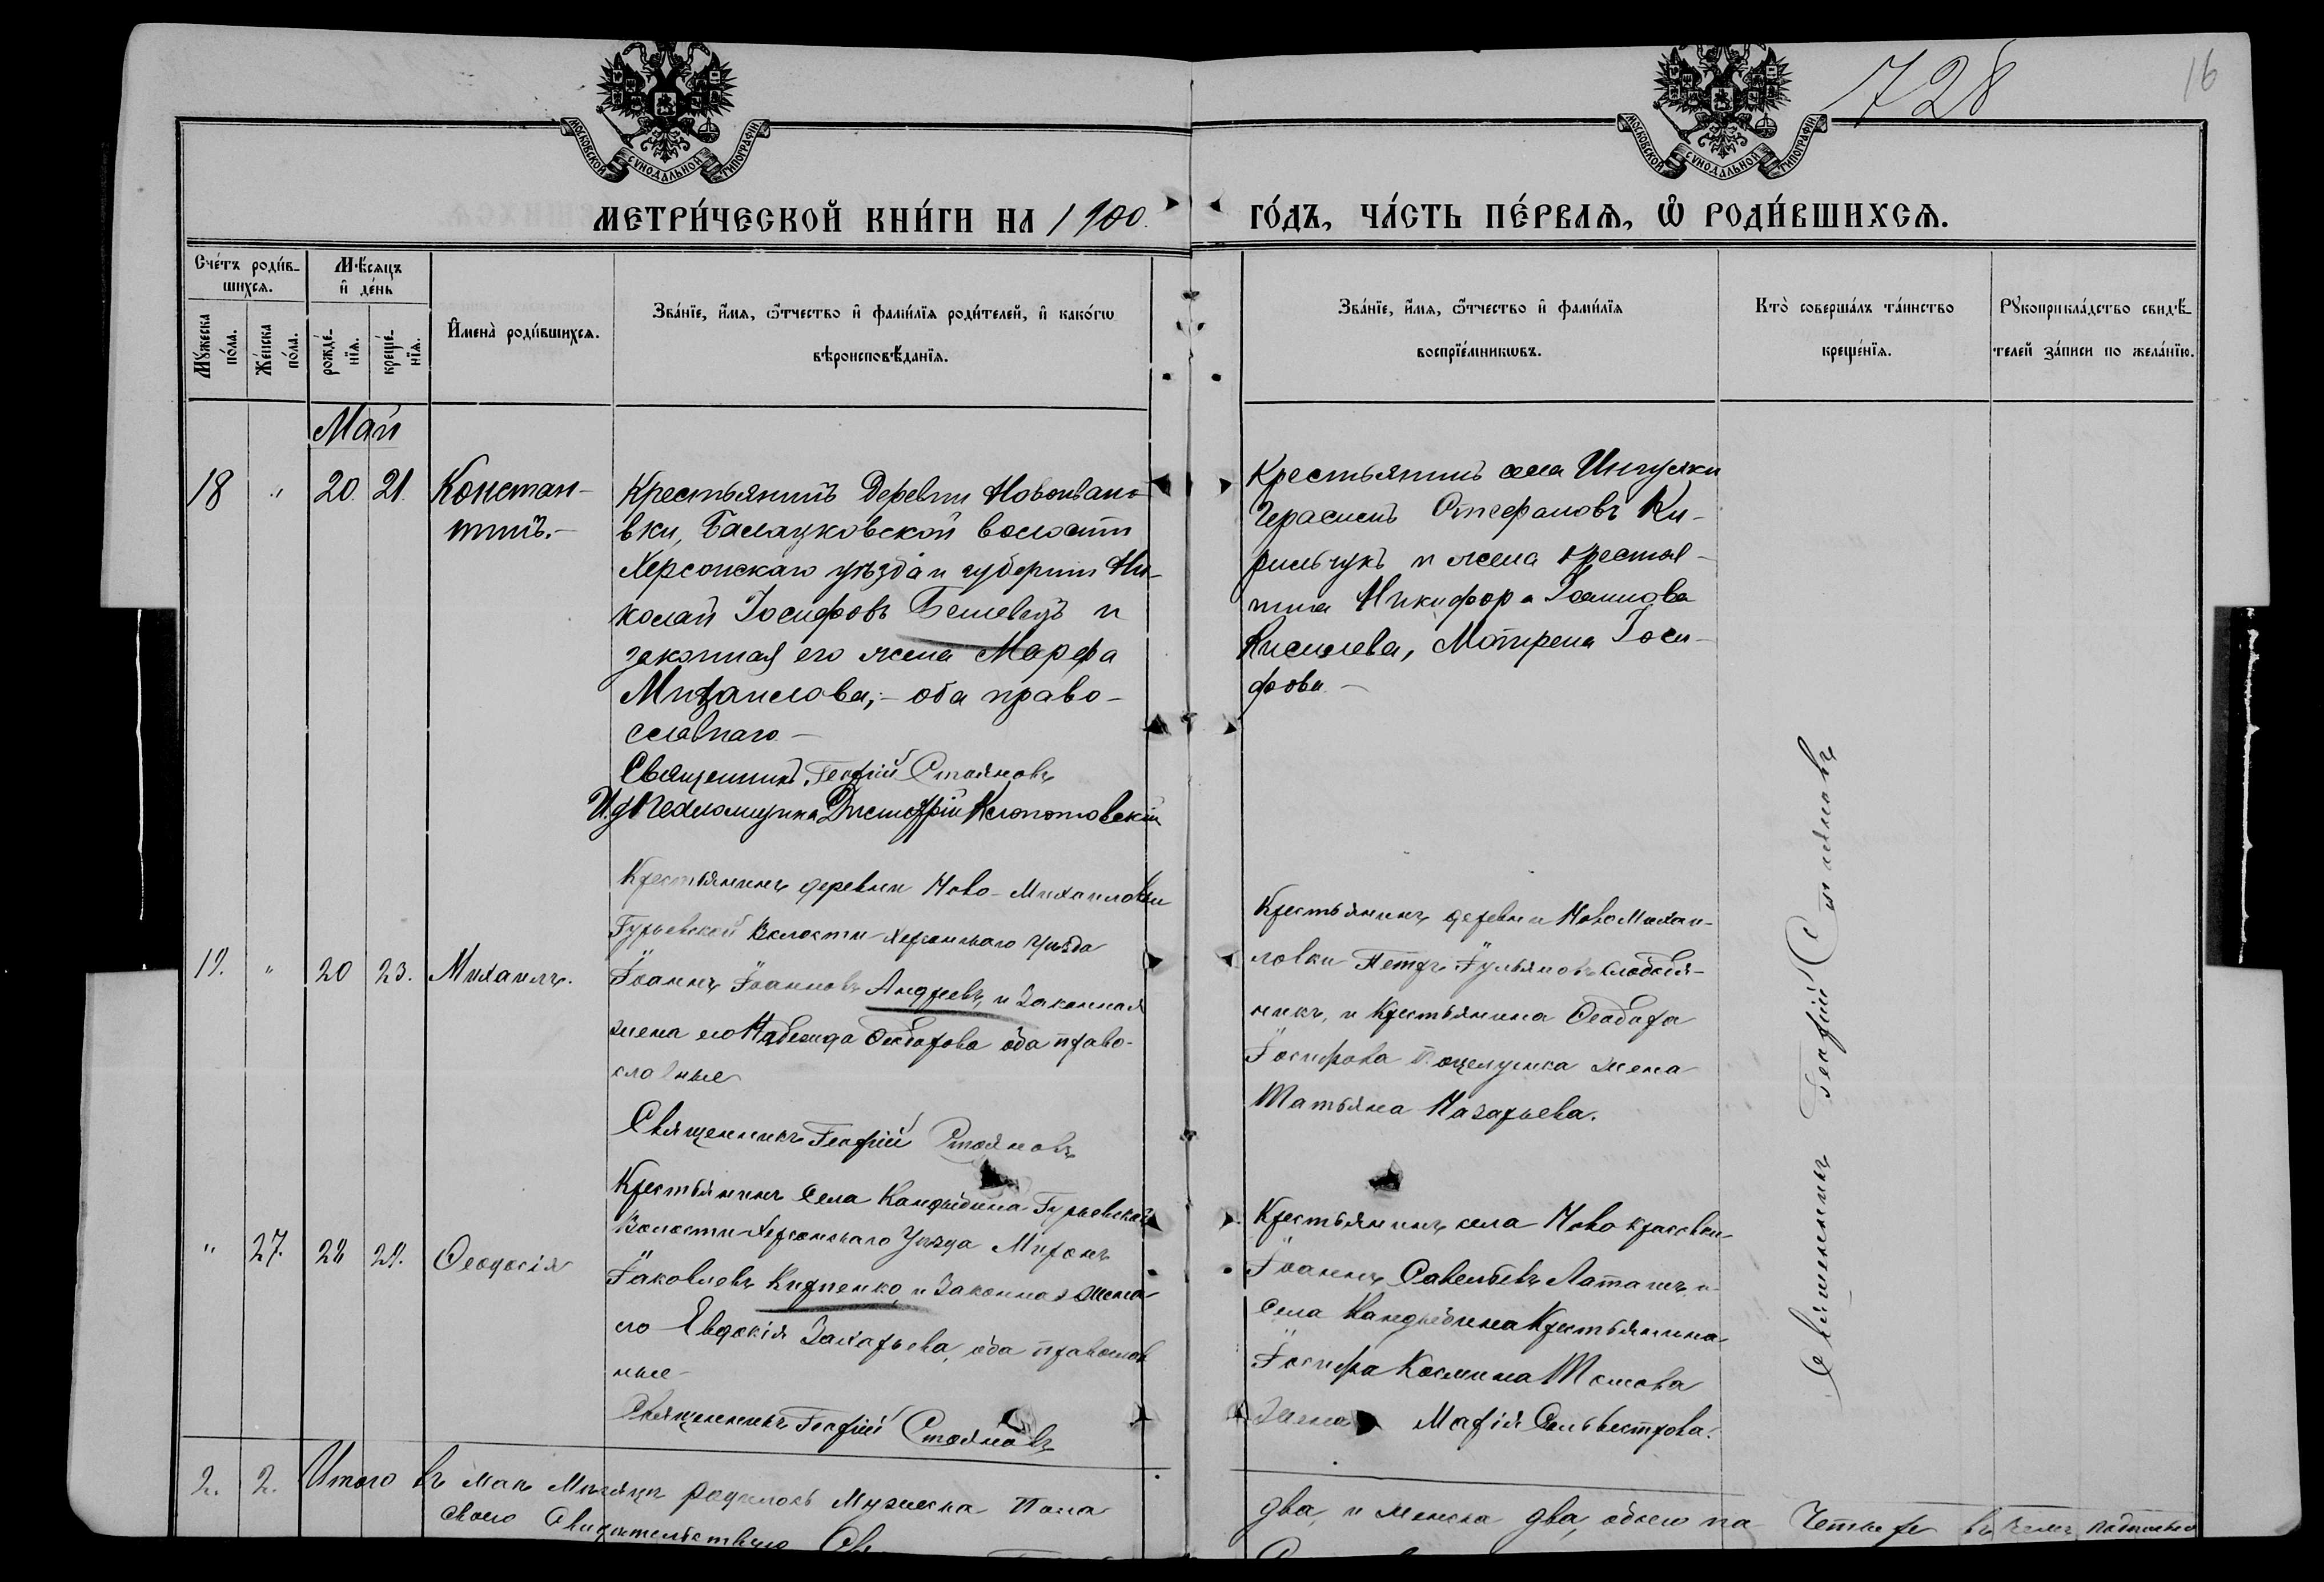 728
16
МОСКОВСКОЙ СѴНОДАЛЬНОЙ ТИПОГРАФІИ
МОСКОВСКОЙ СѴНОДАЛЬНОЙ ТИПОГРАФІИ
МЕТРИ́ЧЕСКОЙ КНИ́ГИ НА 1900 ГО́ДЪ, ЧА́СТЬ ПЕ́РВАѦ, Ѿ РОДИ́ВШИХСѦ.
Сче́тъ роди́в-
шихсѧ.
Мꙋ́жеска
по́ла.
Же́нска
по́ла.
Мѣ́сѧцъ
и҆ де́нь
рожде́-
нїѧ.
креще́-
нїѧ.
И҆мена̀ роди́вшихсѧ.
Зва́нїе, и҆́мѧ, ѻ҆́тчество и҆ фами́лїѧ роди́телей, и҆ како́гѡ
вѣроисповѣ́данїѧ.
Зва́нїе, и҆́мѧ, ѻ҆́тчество и҆ фами́лїѧ
воспрїе́мникѡвъ.
Кто̀ соверша́лъ та́инство
креще́нїѧ.
Рꙋкоприкла́дство свидѣ́-
телей за́писи по жела́нїю.
Май
18 " 20. 21. Констан-
тинъ.-
Крестьянинъ деревни Новоивано-
вки, Балацковской волости
Херсонскаго уѣзда и губерніи Ни-
колай Іосифовъ и
законная его жена Марфа
Михаилова; - оба право-
славнаго -
Священникъ Георгій Стояновъ
И. д. псаломщика Димитрій Клопотовскій
Крестьянинъ села Ингулки
Герасимъ Стефановъ Ки-
рильчукъ и жена крестья-
нина Никифора Іоаннова
Киселева, Матрена Іоси-
фова -
19. " 20 23. Михаилъ.
Крестьянинъ деревни Ново-Михаиловки
Гурьевской Волости Херсонскаго Уѣзда
Іоаннъ Іоанновъ Андреевъ и Законная
жена его Надежда Ѳеодорова оба право-
славные
Священникъ Георгій Стояновъ
Крестьянинъ деревни НовоМихаи-
ловки Петръ Іульяновъ Слободя-
никъ, и Крестьянина Ѳеодора
Іосифова Поцелуйка жена
Татьяна Назарьева.
" 27. 28 29. Ѳеодосія
Крестьянинъ Села Кандыбина Гурьевской
Волости Херсонскаго Уѣзда Миронъ
Іаковлевъ Кирпенко и Законная жена
его Евдокія Захарьева, оба православ
ные -
Священникъ Георгій Стояновъ
Крестьянинъ села Ново
Іоаннъ Савельевъ и
Села Кандыбина Крестьянина
Іосифа Космина Томова
Жена Марія Сильвестрова.
Священникъ Георгій Стояновъ
2. 2. Итого въ маѣ Мѣсяцѣ родилось Мужеска Пола два, и женска два, обоего по Четыре въ чемъ подписью
своею Свидѣтельствую